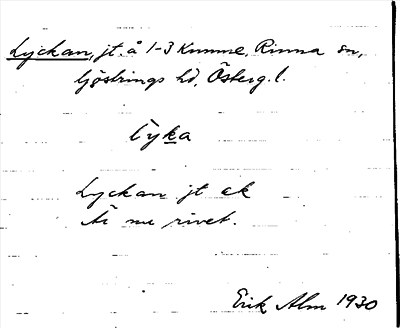 Lyckan, jt. å 1-3 Kumme, Rinna sn,
Göstrings hd, Österg. l.
lỳka
Lyckan jt ek
är nu rivet.
Erik Alm 1930